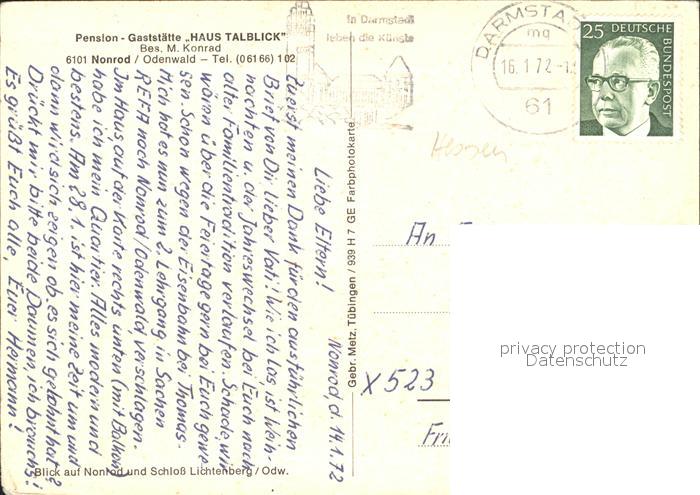 Pension - Gaststätte „HAUS TALBLICK"
Bes. M. Konrad
6101 Nonrod / Odenwald — Tel. (06166) 102
In Darmstadt
leben die Künste
DARMSTA
mg
16.1.72-1
61
25 DEUTSCHE
BUNDESPOST
Hessen
Nonrod, d. 14.1.72
Liebe Eltern!
Zuerst meinen Dank für den ausführlichen
Brief von Dir, lieber Vati! Wie ich las, ist Weih-
nachten u. der Jahreswechsel bei Euch nach
alter Familientradition verlaufen. Schade, wir
wären über die Feiertage gern bei Euch gewe
sen. Schon wegen der Eisenbahn bei Thomas.
Mich hat es nun zum 2. Lehrgang in Sachen
REFA nach Nonrod/Odenwald verschlagen.
Im Haus auf der Karte rechts unten (mit Balkon)
habe ich mein Quartier. Alles modern und
bestens. Am 28.1. ist hier meine Zeit um und
dann wird sich zeigen ob es sich gelohnt hat?
Drückt mir bitte beide Daumen, ich brauch's!
Es grüßt Euch alle, Euer Hermann!
Gebr. Metz, Tübingen / 939 H 7 GE Farbphotokarte
An
X 523
Blick auf Nonrod und Schloß Lichtenberg / Odw.
privacy protection
Datenschutz